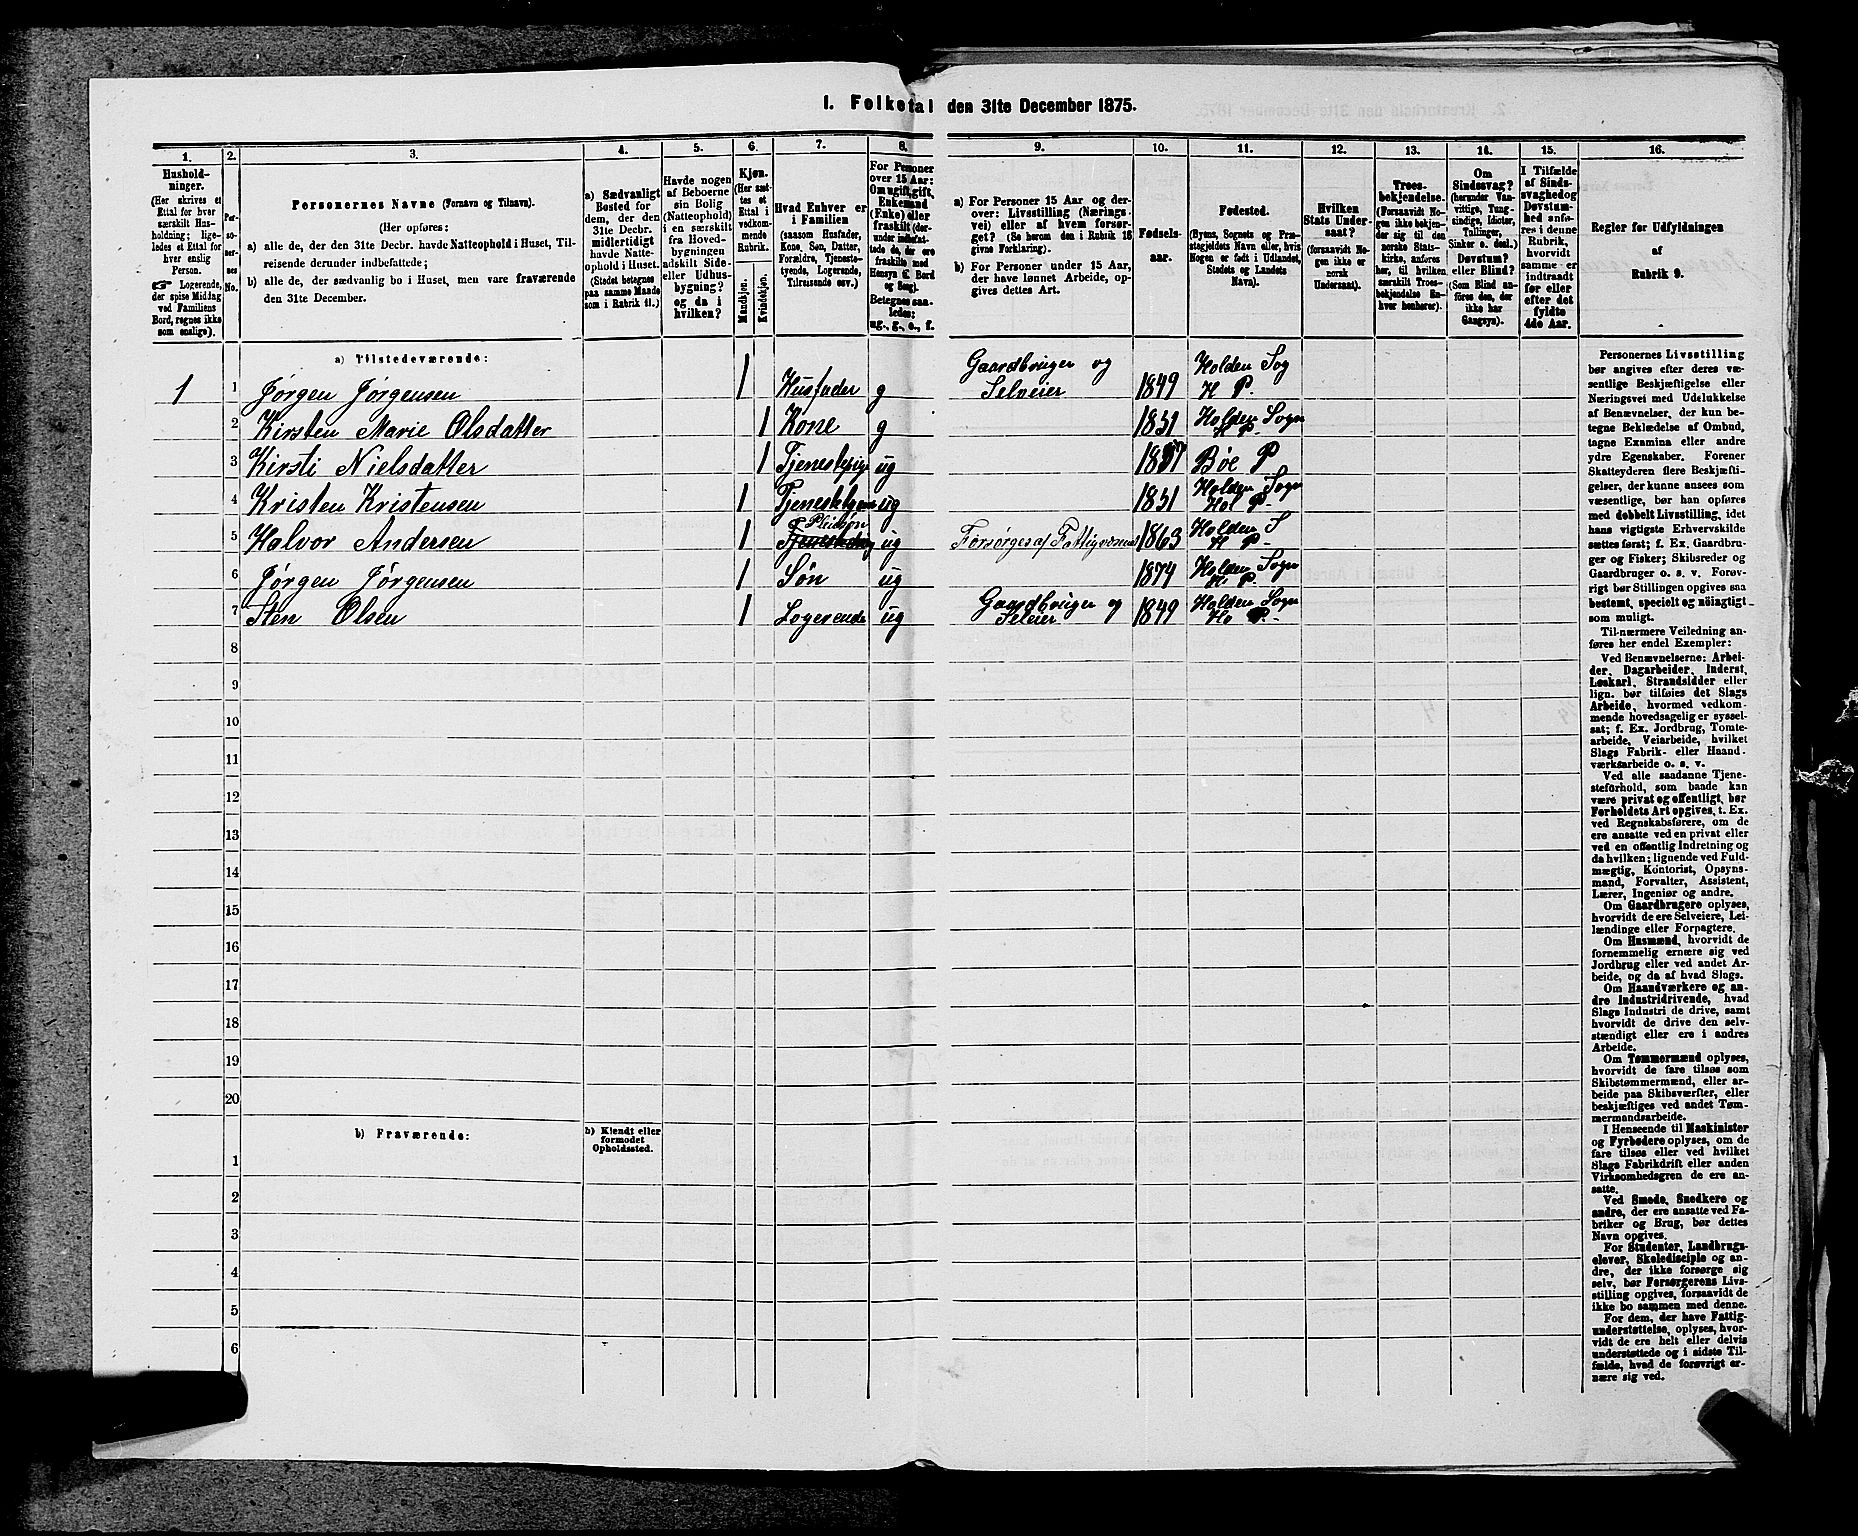 1. Folketal den 31te December 1875.
1. 2. 3. 4. 5. 6. 7. 8. 9. 10. 11. 12. 13. 14. 15. 16.
Hushold-
ninger.
(Her skrives et
Ettal for hver
særskilt Hus-
holdning; lige-
ledes et Ettal for
hver enslig
Person.
☞ Logerende,
der spise Middag
ved Familiens
Bord, regnes ikke
som enslige).
Per-
so-
ner-
nes
No.
Personernes Navne (Fornavn og Tilnavn).
(Her opføres:
a) alle de, der den 31te Decbr. havde Natteophold i Huset, Til-
reisende derunder indbefattede;
b) alle de, der sædvanlig bo i Huset, men vare fraværende
den 31te December.
a) Sædvanligt
Bosted for
dem, der den
31te Decbr.
midlertidigt
havde Natte-
ophold i Huset.
(Stedet betegnes
paa samme Maade
som i Rubrik 11.)
Havde nogen
af Beboerne
sin Bolig
(Natteophold)
i en særskilt
fra Hoved-
bygningen
adskilt Side-
eller Udhus-
bygning?
og da i
hvilken?
Kjøn.
(Her sæt-
tes et
Ettal i
vedkom-
mende
Rubrik.)
Mandkjøn.
Kvindekjøn.
Hvad Enhver er
i Familien
(saasom Husfader,
Kone, Søn, Datter,
Forældre, Tjeneste-
tyende, Logerende,
Tilreisende osv.)
For Personer
over 15 Aar:
Om ugift, gift,
Enkemand
(Enke) eller
fraskilt (der-
under indbefat-
tede de, der ere
fraskilte med
Hensyn til Bord
og Seng).
Betegnes saa-
ledes:
ug., g., e., f.
a) For Personer 15 Aar og der-
over: Livsstilling (Nærings-
vei) eller af hvem forsør-
get? (Se herom den i Rubrik 16
givne Forklaring).
b) For Personer under 15 Aar,
der have lønnet Arbeide, op-
gives dettes Art.
Fødsels-
aar.
Fødested.
(Byens, Sognets og Præ-
stegjeldets Navn eller, hvis
Nogen er født i Udlandet,
Stedets og Landets
Navn).
Hvilken
Stats Under-
saat?
(forsaavidt No-
gen ikke er
norsk
Undersaat).
Troes-
bekjendelse.
(Forsaavidt No-
gen ikke bekjen-
der sig til den
norske Stats-
kirke, anføres
her, til hvilken
særskilt Troes-
bekjendelse En-
hver henhører).
Om
Sindssvag?
(herunder Van-
vittige, Tung-
sindige, Idioter,
Tullinger,
Sinker o. desl.)
Døvstum?
eller Blind?
(Som Blind an-
føres den, der
ikke har
Gangsyn).
I Tilfælde
af Sinds-
svaghed og
Døvstum-
hed anfø-
res i denne
Rubrik,
hvorvidt
samme er
indtraadt
før eller
efter det
fyldte
4de Aar.
Regler for Udfyldningen
af
Rubrik 9.
a) Tilstedeværende:
1 1 Jørgen Jørgensen 1 Husfader g Gaardbruger og Selveier 1849 Holden Sog H P.
2 Kirsten Marie Olsdatter 1 Kone g 1851 Holden Sogn H P.
3 Kirsti Nielsdatter 1 Tjenestepige ug 1857 Bøe P
4 Kristen Kristensen 1 ug 1851 Holden Sogn Hol P.
5 Halvor Andersen 1 Pleiesøn ug Forsørges af Fattigvæsnet 1863 Holden S H P.
6 Jørgen Jørgensen 1 Søn ug 1874 Holden Sogn H. P.
7 Sten Olsen 1 Logerende ug Gaardbruger og Seleier 1849 Holden Sogn Ho P.
8
9
10
11
12
13
14
15
16
17
18
19
20
b) Fraværende:
b) Kjendt eller
formodet
Opholdssted.
1
2
3
4
5
6
Personernes Livsstilling
bør angives efter deres væ-
sentlige Beskjæftigelse eller
Næringsvei med Udelukkelse
af Benævnelser, der kun be-
tegne Beklædelse af Ombud,
tagne Examina eller andre
ydre Egenskaber. Forener
Skatteyderen flere Beskjæfti-
gelser, der kunne ansees som
væsentlige, bør han opføres
med dobbelt Livsstilling, idet
hans vigtigste Erhvervskilde
sættes først; f. Ex. Gaardbru-
ger og Fisker; Skibsreder og
Gaardbruger o. s. v. Forøv-
rigt bør Stillingen opgives saa
bestemt, specielt og nöiagtigt
som muligt.
Til nærmere Veiledning an-
føres her endel Exempler:
Ved Benævnelserne: Arbei-
der, Dagarbeider, Inderst,
Løskarl, Strandsidder eller
lign. bør tilføies det Slags
Arbeide, hvormed vedkom-
mende hovedsagelig er syssel-
sat; f. Ex. Jordbrug, Tomte-
arbeide, Veiarbeide, hvilket
Slags Fabrik- eller Haand-
værksarbeide o. s. v.
Ved alle saadanne Tjene-
steforhold, som baade kan
være privat og offentligt, bør
Forholdets Art opgives, t. Ex.
ved Regnskabsførere, om de
ere ansatte ved en privat eller
ved en offentlig Indretning og
da hvilken; lignende ved Fuld-
mægtig, Kontorist, Opsyns-
mand, Forvalter, Assistent,
Lærer, Ingeniør og andre.
Om Gaardbrugere oplyses,
hvorvidt de ere Selveiere, Lei-
lændinge eller Forpagtere.
Om Husmænd, hvorvidt de
fornemmelig ernære sig ved
Jordbrug eller ved andet Ar-
beide, og da af hvad Slags.
Om Haandværkere og an-
dre Industridrivende, hvad
Slags Industri de drive, samt
hvorvidt de drive den selv-
stændigt eller ere i andres
Arbeide.
Om Tømmermænd oplyses,
hvorvidt de fare tilsøs som
Skibstømmermænd, eller ar-
beide paa Skibsværfter, eller
beskjæftiges ved andet Tøm-
mermandsarbeide.
I Henseende til Maskinister
og Fyrbødere oplyses, om de
fare tilsøs eller ved hvilket
Slags Fabrikdrift eller anden
Virksomhedsgren de ere an-
satte.
Ved Smede, Snedkere og
andre, der ere ansatte ved Fa-
briker og Brug, bør dettes
Navn opgives.
For Studenter, Landbrugs-
elever, Skoledisciple og an-
dre, der ikke forsørge sig
selv, bør Forsørgerens Livs-
stilling opgives, forsaavidt de
ikke bo sammen med denne.
For dem, der have Fattig-
understøttelse, oplyses, hvor-
vidt de ere helt eller delvis
understøttede og i sidste Til-
fælde, hvad de forøvrigt er-
nære sig ved.